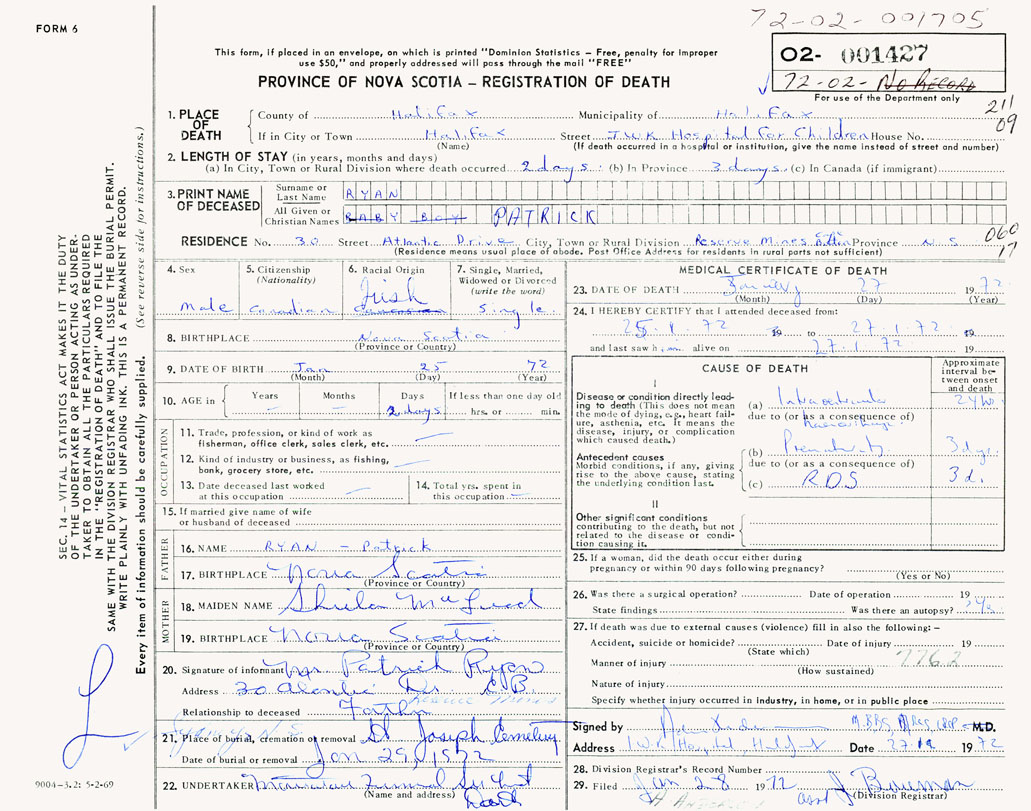 72-02-001705
FORM 6
O2- 001427
72-02- No RECORD
For use of the Department only
This form, if placed in an envelope, on which is printed "Dominion Statistics – Free, penalty for improper
use $50," and properly addressed will pass through the mail "FREE"
PROVINCE OF NOVA SCOTIA – REGISTRATION OF DEATH
211
09
1. PLACE OF DEATH
County of Halifax Municipality of Halifax
If in City or Town Halifax Street I.W.K Hospital for Children House No.
(Name) (If death occurred in a hospital or institution, give the name instead of street and number)
2. LENGTH OF STAY (in years, months and days)
(a) In City, Town or Rural Division where death occurred 2 days (b) In Province 3 days (c) In Canada (if immigrant)
3. PRINT NAME OF DECEASED
Surname or Last Name RYAN
All Given or Christian Names BABY BOY PATRICK
RESIDENCE No. 30 Street Atlantic Drive City, Town or Rural Division Reserve Mines Province N.S
060
17
(Residence means usual place of abode. Post Office Address for residents in rural parts not sufficient)
4. Sex
Male
5. Citizenship
(Nationality)
Canadian
6. Racial Origin
Irish
7. Single, Married,
Widowed or Divorced
(write the word)
Single
8. BIRTHPLACE Nova Scotia
(Province or Country)
9. DATE OF BIRTH Jan 25 1972
(Month) (Day) (Year)
10. AGE in
Years Months Days If less than one day old
2 days hrs. or min.
OCCUPATION
11. Trade, profession, or kind of work as
fisherman, office clerk, sales clerk, etc.
12. Kind of industry or business, as fishing,
bank, grocery store, etc.
13. Date deceased last worked
at this occupation
14. Total yrs. spent in
this occupation
15. If married give name of wife
or husband of deceased
FATHER
16. NAME RYAN – Patrick
17. BIRTHPLACE Nova Scotia
(Province or Country)
MOTHER
18. MAIDEN NAME Shiela
19. BIRTHPLACE Nova Scotia
(Province or Country)
20. Signature of informant Mr Patrick Ryan
Address 30 Dr. C.B.
Reserve Mines
Relationship to deceased Father
21. Place of burial, cremation or removal St Joseph Cemetery
Date of burial or removal Jan 29, 1972
22. UNDERTAKER Funeral
(Name and address)
MEDICAL CERTIFICATE OF DEATH
23. DATE OF DEATH January 27 1972
(Month) (Day) (Year)
24. I HEREBY CERTIFY that I attended deceased from:
25.1.72 19 to 27.1.72 19
and last saw him alive on 27.1.72 19
CAUSE OF DEATH
Approximate
interval be-
tween onset
and death
I
Disease or condition directly lead-
ing to death (This does not mean
the mode of dying, e.g., heart fail-
ure, asthenia, etc. It means the
disease, injury, or complication
which caused death.)
(a)
due to (or as a consequence of)
haemorrhage
Antecedent causes
Morbid conditions, if any, giving
rise to the above cause, stating
the underlying condition last.
(b) Prematurity 3 dys.
due to (or as a consequence of)
(c) RDS 3 d.
II
Other significant conditions
contributing to the death, but not
related to the disease or condi-
tion causing it.
25. If a woman, did the death occur either during
pregnancy or within 90 days following pregnancy?
(Yes or No)
26. Was there a surgical operation? Date of operation 19
State findings Was there an autopsy?
27. If death was due to external causes (violence) fill in also the following: –
Accident, suicide or homicide? Date of injury 19
(State which)
Manner of injury 776.2
(How sustained)
Nature of injury
Specify whether injury occurred in industry, in home, or in public place
Signed by M.D.
Address I.W.K Hospital Halifax Date 1972
28. Division Registrar's Record Number
29. Filed Jan 28 1972 J Bowman
(Division Registrar)
SEC. 14 – VITAL STATISTICS ACT MAKES IT THE DUTY
OF THE UNDERTAKER OR PERSON ACTING AS UNDER-
TAKER TO OBTAIN ALL THE PARTICULARS REQUIRED
IN THE "REGISTRATION OF DEATH" AND TO FILE THE
SAME WITH THE DIVISION REGISTRAR WHO SHALL ISSUE THE BURIAL PERMIT.
WRITE PLAINLY WITH UNFADING INK. THIS IS A PERMANENT RECORD.
Every item of information should be carefully supplied. (See reverse side for instructions.)
9004-3.2: 5-2-69